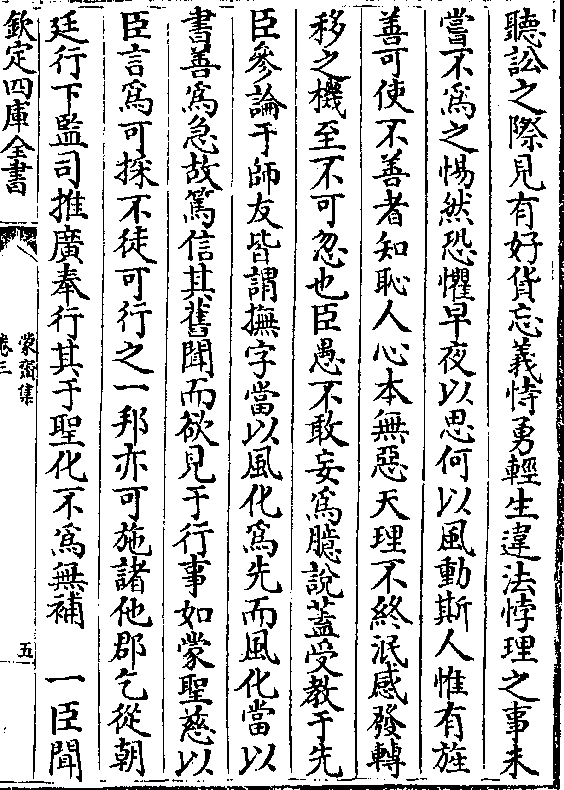 聽訟之際見有好貨忘義恃勇輕生違法悖理之事未
嘗不為之惕然恐懼早夜以思何以風動斯人惟有旌
善可使不善者知恥人心本無惡天理不終泯感發轉
移之機至不可忽也臣愚不敢妄為臆說蓋受教于先
臣參論于師友皆謂撫字當以風化為先而風化當以
書善為急故篤信其舊聞而欲見于行事如蒙聖慈以
臣言為可採不徒可行之一邦亦可施諸他郡乞從朝
廷行下監司推廣奉行其于聖化不為無補　一臣聞
欽定四庫全書
蒙齋集
卷三
五